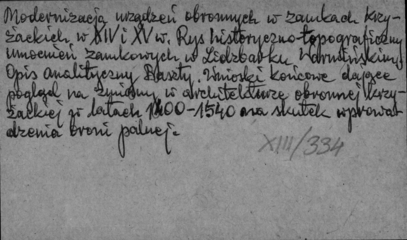 Modernizacja urządzeń obronnych w zamkach krzy-
żackich w XIV i XV w. Rys historyczno-topograficzny
umocnień zamkowych w Lidzbarku Warmińskim.
Opis analityczny Baszty. Wnioski końcowe dające
pogląd na zmiany w architekturze obronnej krzy-
żackiej w latach 1400-1540 na skutek wprowa-
dzenia broni palnej.
XIII/334